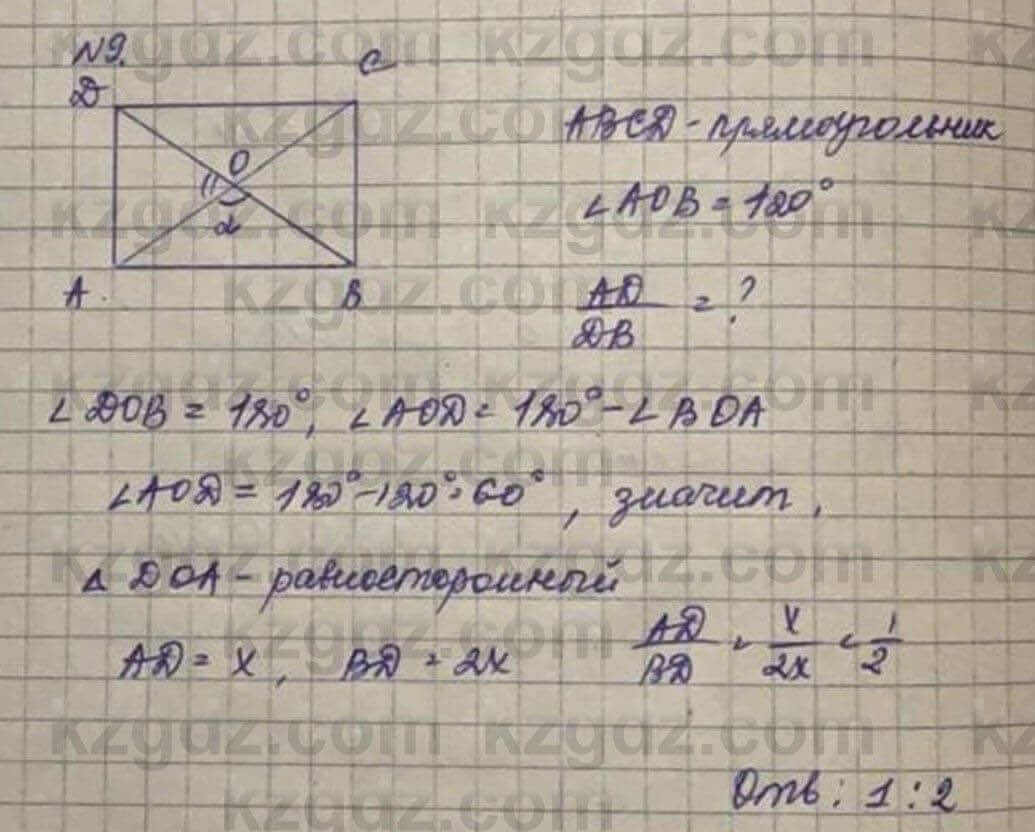 N9.
D C
O
α
A. B
ABCD - прямоугольник
∠AOB = 120°
AD/DB = ?
∠DOB = 180°, ∠AOD = 180° - ∠BOA
∠AOD = 180° - 120° = 60°, значит,
△ DOA - равносторонный
AD = x, BD = 2x AD/BD = x/2x = 1/2
Отв: 1:2
kzgdz.com